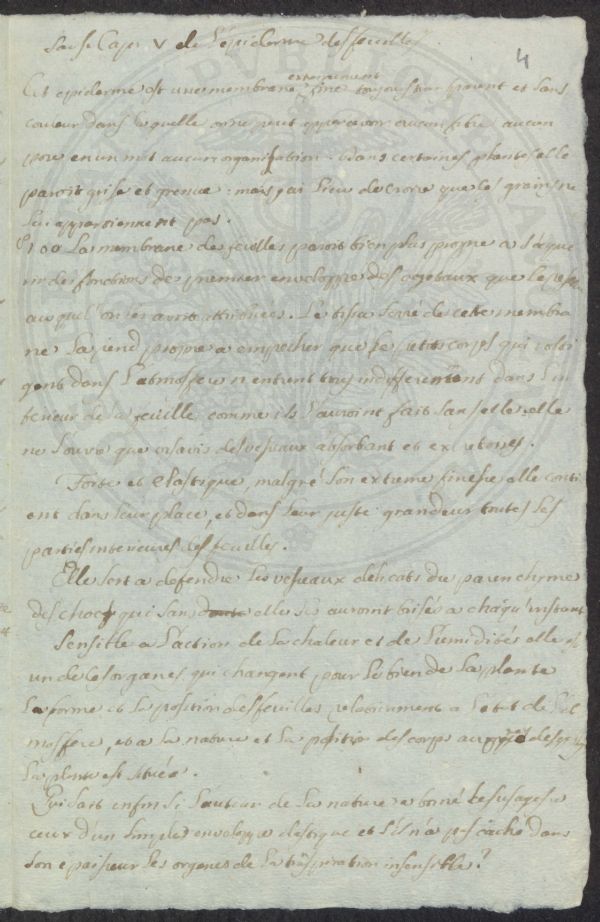 Sauss. Cap. V de l'epiderme des feuilles
4
Cet epiderme est une membrane extremement fine toujours transparent et sans
couleur dans laquelle on ne peut appercevoir aucun fibre aucun
pore en un mot aucune organisation. dans certaines plantes elle
paroit grise et grenue: mais j'ai lieu de croire que ces grains ne
lui appartiennent pas.
P 100 La membrane de feuilles paroit bien plus propre a s'acque
rir des fonctions de premier enveloppe des vegetaux que le reseau
au quel on en avoit attribuées. Le tissu serré de cette membra
ne la rend propre a empecher que les petits corps qui volti
gent dans l'atmosfere n'entrent tous indifferemment dans l'in
terieur de la feuille, comme ils l'auroint fait sans elle. elle
ne s'ouvre que visavis des veseaux absorbant et excretoires.
Forte et elastique, malgré son extreme finesse elle conti
ent dans leur place, et dans leur juste grandeur toutes les
parties interieures des feuilles.
Elle sert a defendre les veseaux delicats du parenchyme
des chocs qui sans elle les auroint brisés a chaqu'instant
Sensible a l'action de la chaleur et de l'umidités elle est
un de les organes qui changent pour le bien de la plante
la forme et la position des feuilles relativement a l'etat de l'at
mosfere, et a la nature et la position des corps aupres desquels
la plante est située.
Qui sait enfin si l'auteur de la nature a borné les usages a
ceux d'un simple enveloppe elastique et s'il n'a pas caché dans
son epaisseur les organes de la traspiration insensible?